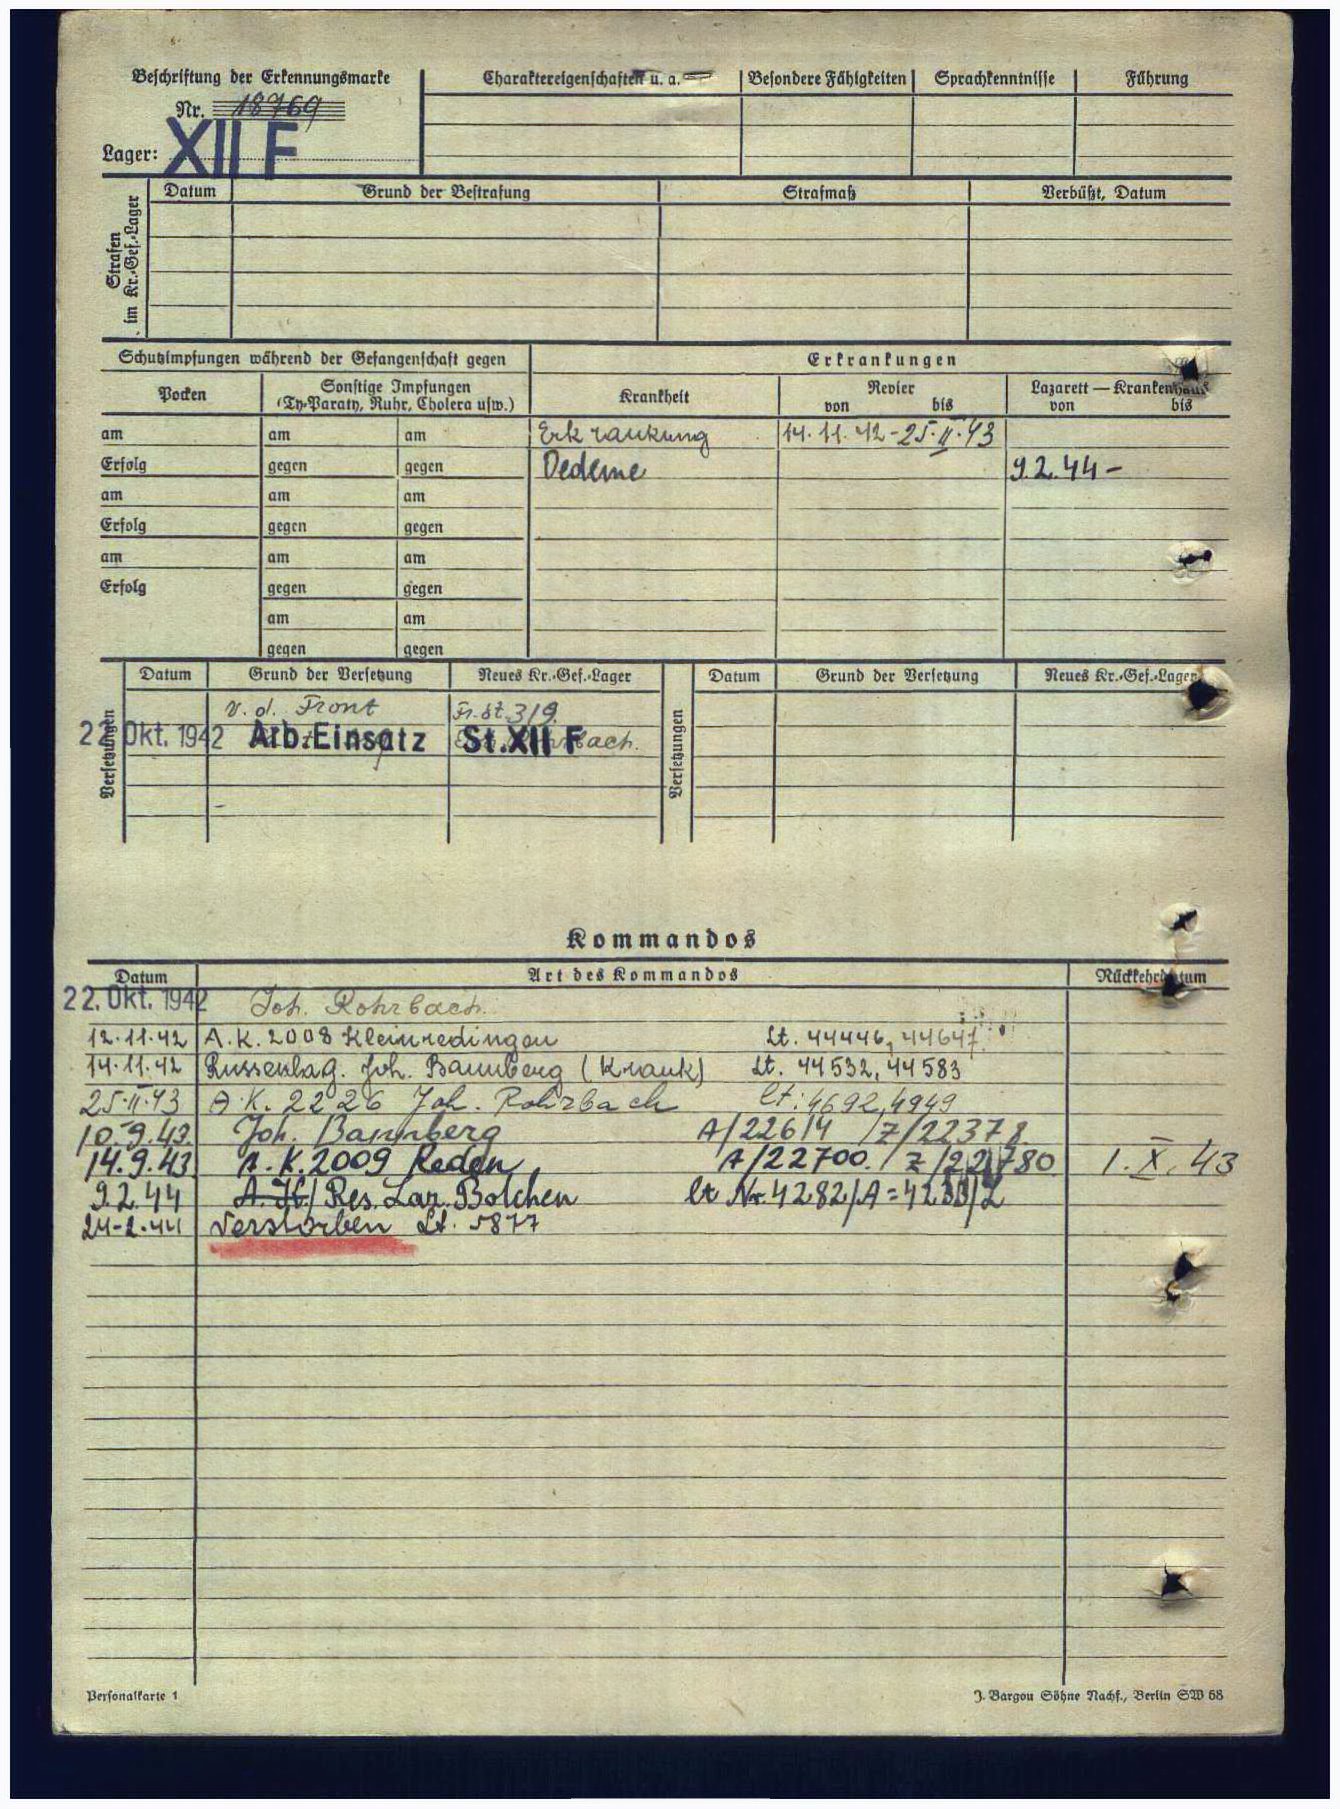 Beschriftung der Erkennungsmarke
Nr. 18769
Lager: XII F
Charaktereigenschaften u. a. Besondere Fähigkeiten Sprachkenntnisse Führung
Strafen im Kr.-Gef.-Lager
Datum Grund der Bestrafung Strafmaß Verbüßt, Datum
Schutzimpfungen während der Gefangenschaft gegen Erkrankungen
Pocken Sonstige Impfungen (Ty-Paraty, Ruhr, Cholera usw.) Krankheit Revier von bis Lazarett — Krankenhaus von bis
am am am Erkrankung 14.11.42-25.II.43
Erfolg gegen gegen Oedeme 9.2.44-
am am am
Erfolg gegen gegen
am am am
Erfolg gegen gegen
am am
gegen gegen
Versetzungen Datum Grund der Versetzung Neues Kr.-Gef.-Lager Versetzungen Datum Grund der Versetzung Neues Kr.-Gef.-Lager
v. d. Front Fr. St. 319
22 Okt. 1942 Arb.Einsatz St.XII F
Kommandos
Datum Art des Kommandos Rückkehrdatum
22. Okt. 1942 Joh. Rohrbach.
12.11.42 A.K. 2008 Kleinredingen Lt. 44446, 44647
14.11.42 Russenlag. Joh. Bannberg (Krank) Lt. 44532, 44583
25.II.43 A.K. 2226 Joh. Rohrbach lt: 4692, 4949
10.9.43. Joh. Bannberg A/22614 /Z/22378
14.9.43 A.K. 2009 Reden A/22700 / Z/22780 1.X.43
9.2.44 A.K./ Res. Laz. Bolchen lt Nr. 4282/A=4233/Z
24-2.44 Verstorben Lt. 5877
Personalkarte 1 J. Bargou Söhne Nachf., Berlin SW 68